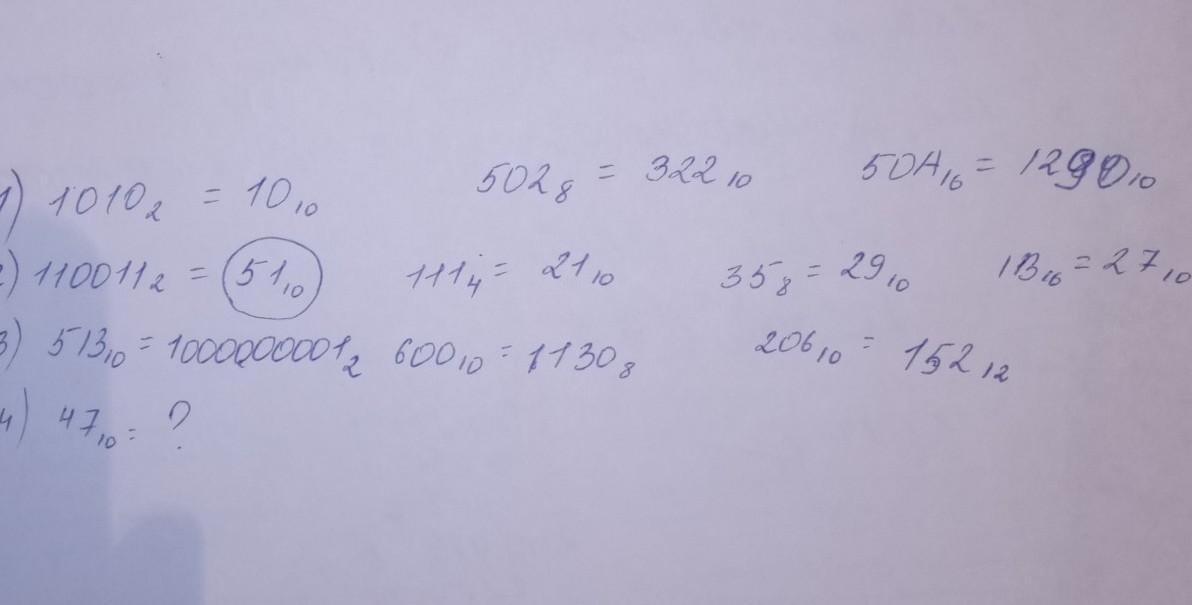 1) 1010₂ = 10₁₀ 502₈ = 322₁₀ 50A₁₆ = 1290₁₀
2) 110011₂ = 51₁₀ 111₄ = 21₁₀ 35₈ = 29₁₀ 1B₁₆ = 27₁₀
3) 513₁₀ = 1000000001₂ 600₁₀ = 1130₈ 206₁₀ = 152₁₂
4) 47₁₀ = ?